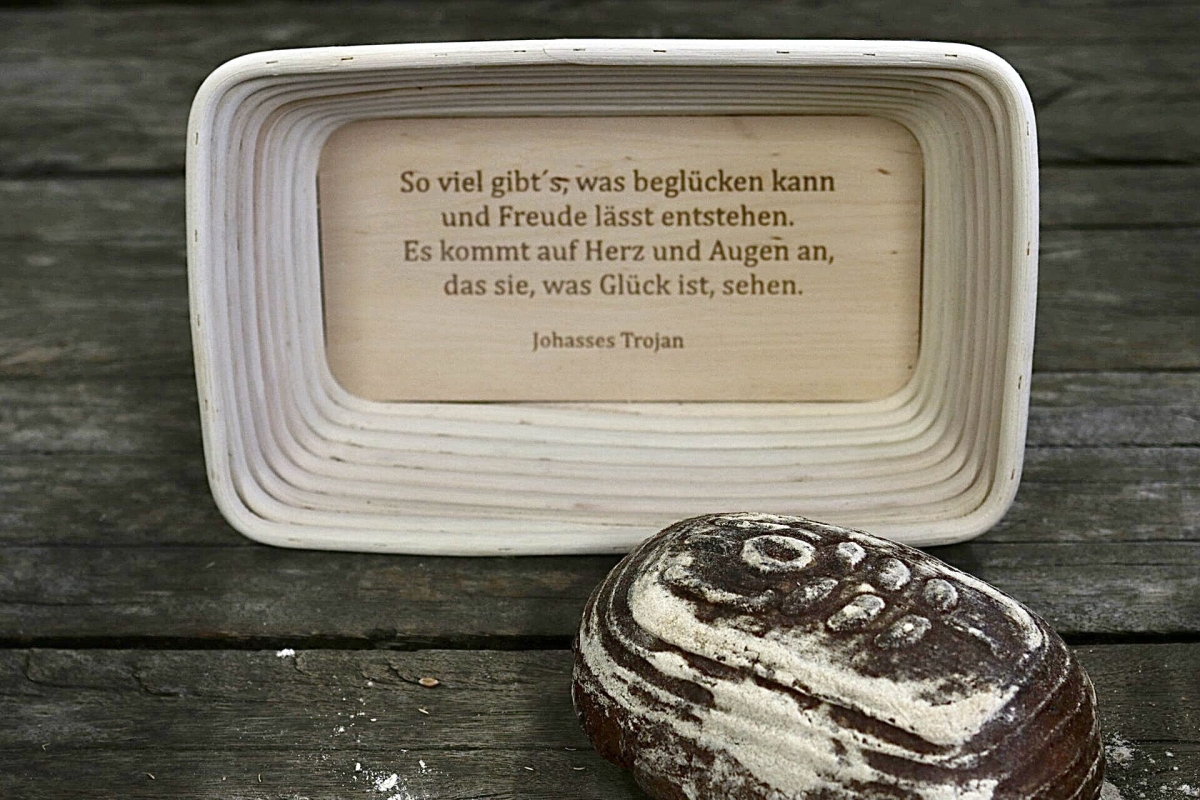 So viel gibt´s, was beglücken kann
und Freude lässt entstehen.
Es kommt auf Herz und Augen an,
das sie, was Glück ist, sehen.
Johasses Trojan